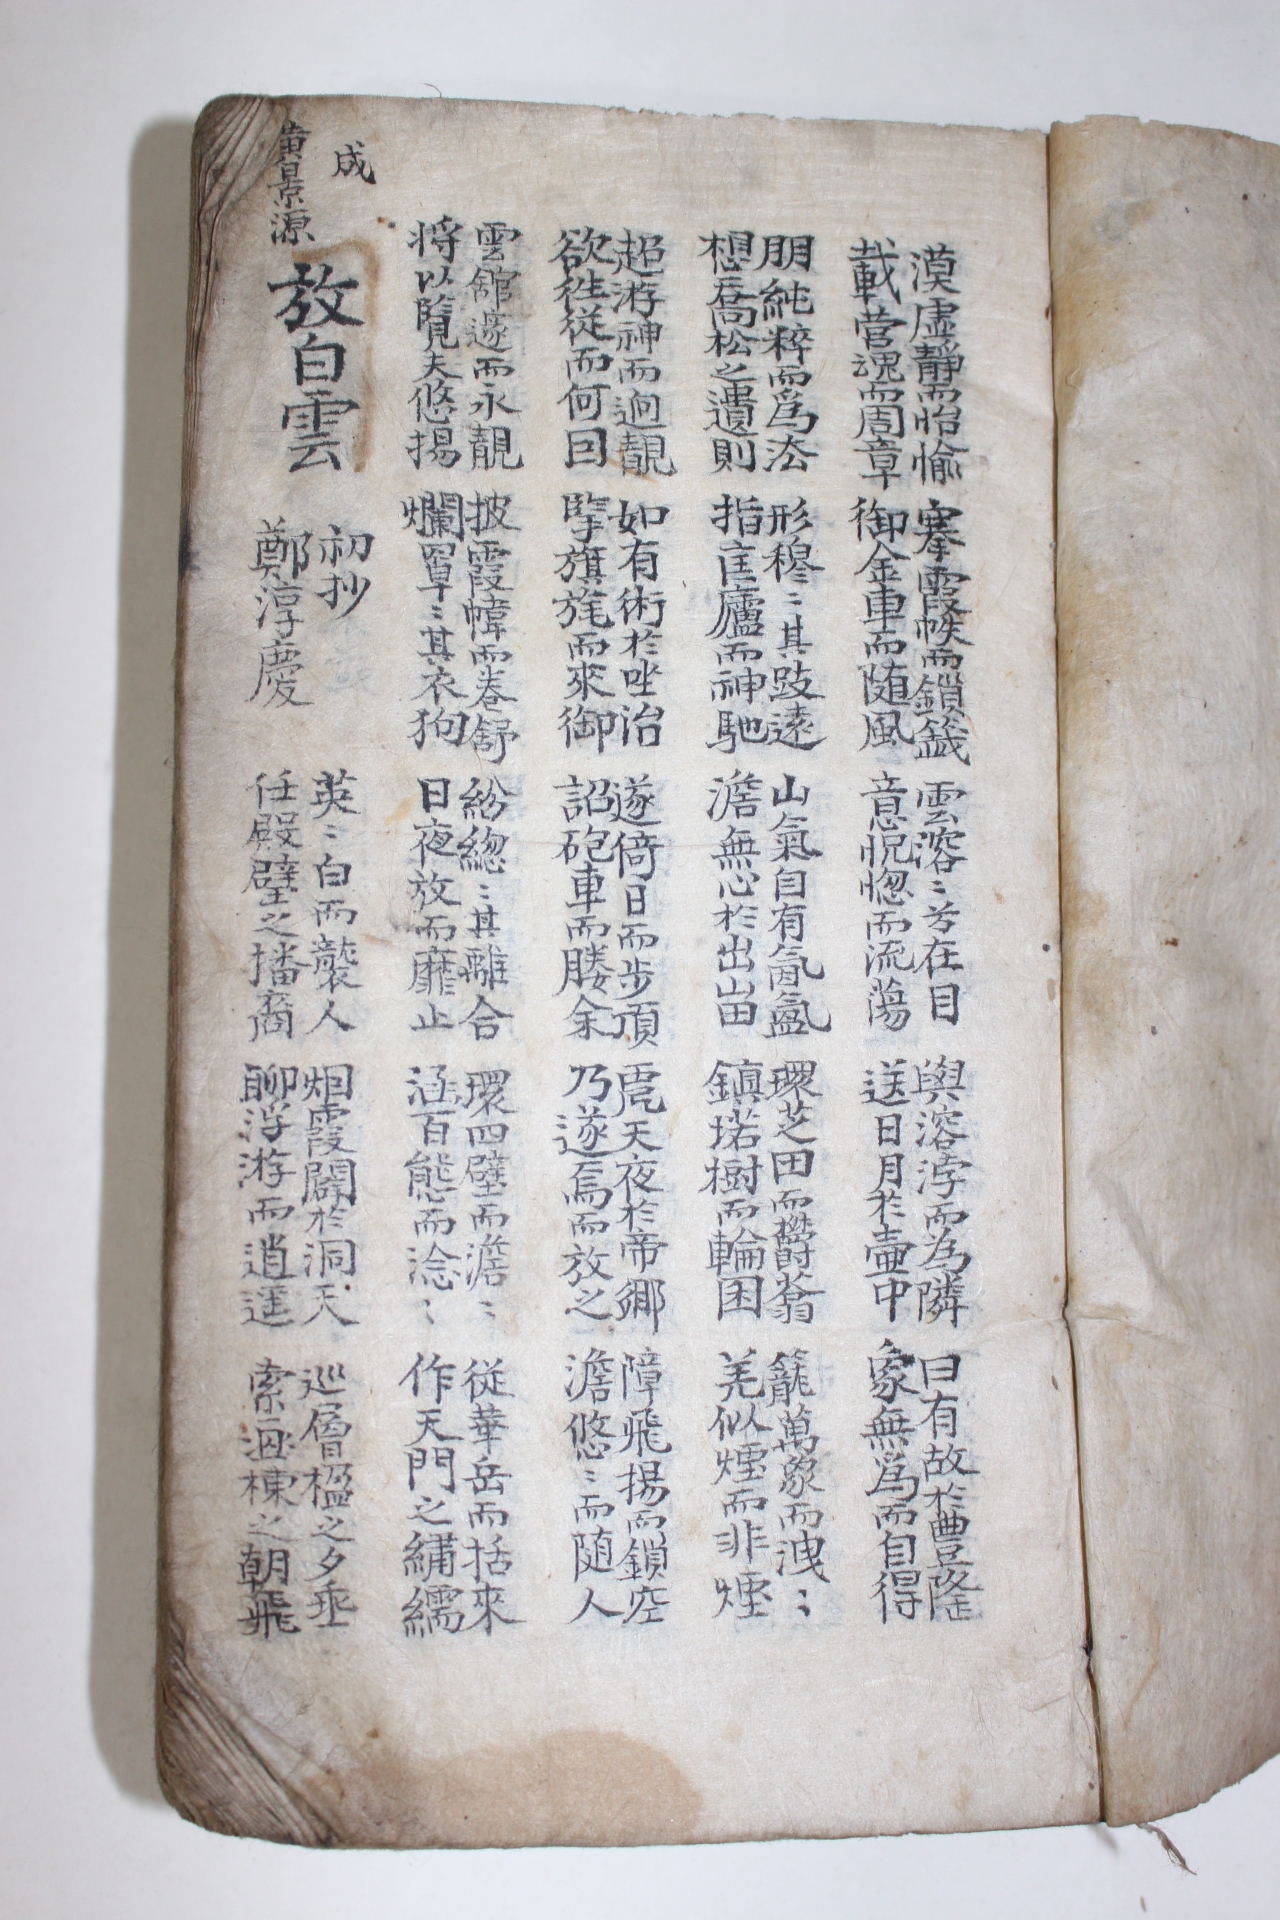 漠虛靜而怡愉
載營魂而周章
搴霞帙而鎖籤
御金車而随風
雲溶〻兮在目
意怳惚而流蕩
與溶浡而為隣
送日月於壷中
曰有故於豊隆
象無爲而自得
朋純粹而爲法
想喬松之遺則
形穆〻其跂遠
指匡廬而神馳
山氣自有氤氳
澹無心於出岫
環芝田而欝蓊
鎮塔樹而輪囷
籠萬象而洩〻
羌似煙而非煙
超游神而逈覩
欲徃從而何因
如有術於坐治
擥旗旄而來御
遂倚日而步頂
詔砲車而媵余
咫天夜於帝鄉
乃遂焉而放之
障飛揚而鎖空
澹悠〻而随人
雲舘邃而永覩
将以覽夫悠揚
披霞幃而卷舒
爛罩〻其衣狗
紛緫〻其離合
日夜放而靡止
環四壁而澹〻
涵百態而淰〻
從華岳而括來
作天門之繡繻
成
黄景源
放白雲
初抄
鄭淳慶
英〻白而襲人
任殿壁之播裔
烟霞闢於洞天
聊浮游而逍遥
巡層楹之夕垂
索洄棟之朝飛